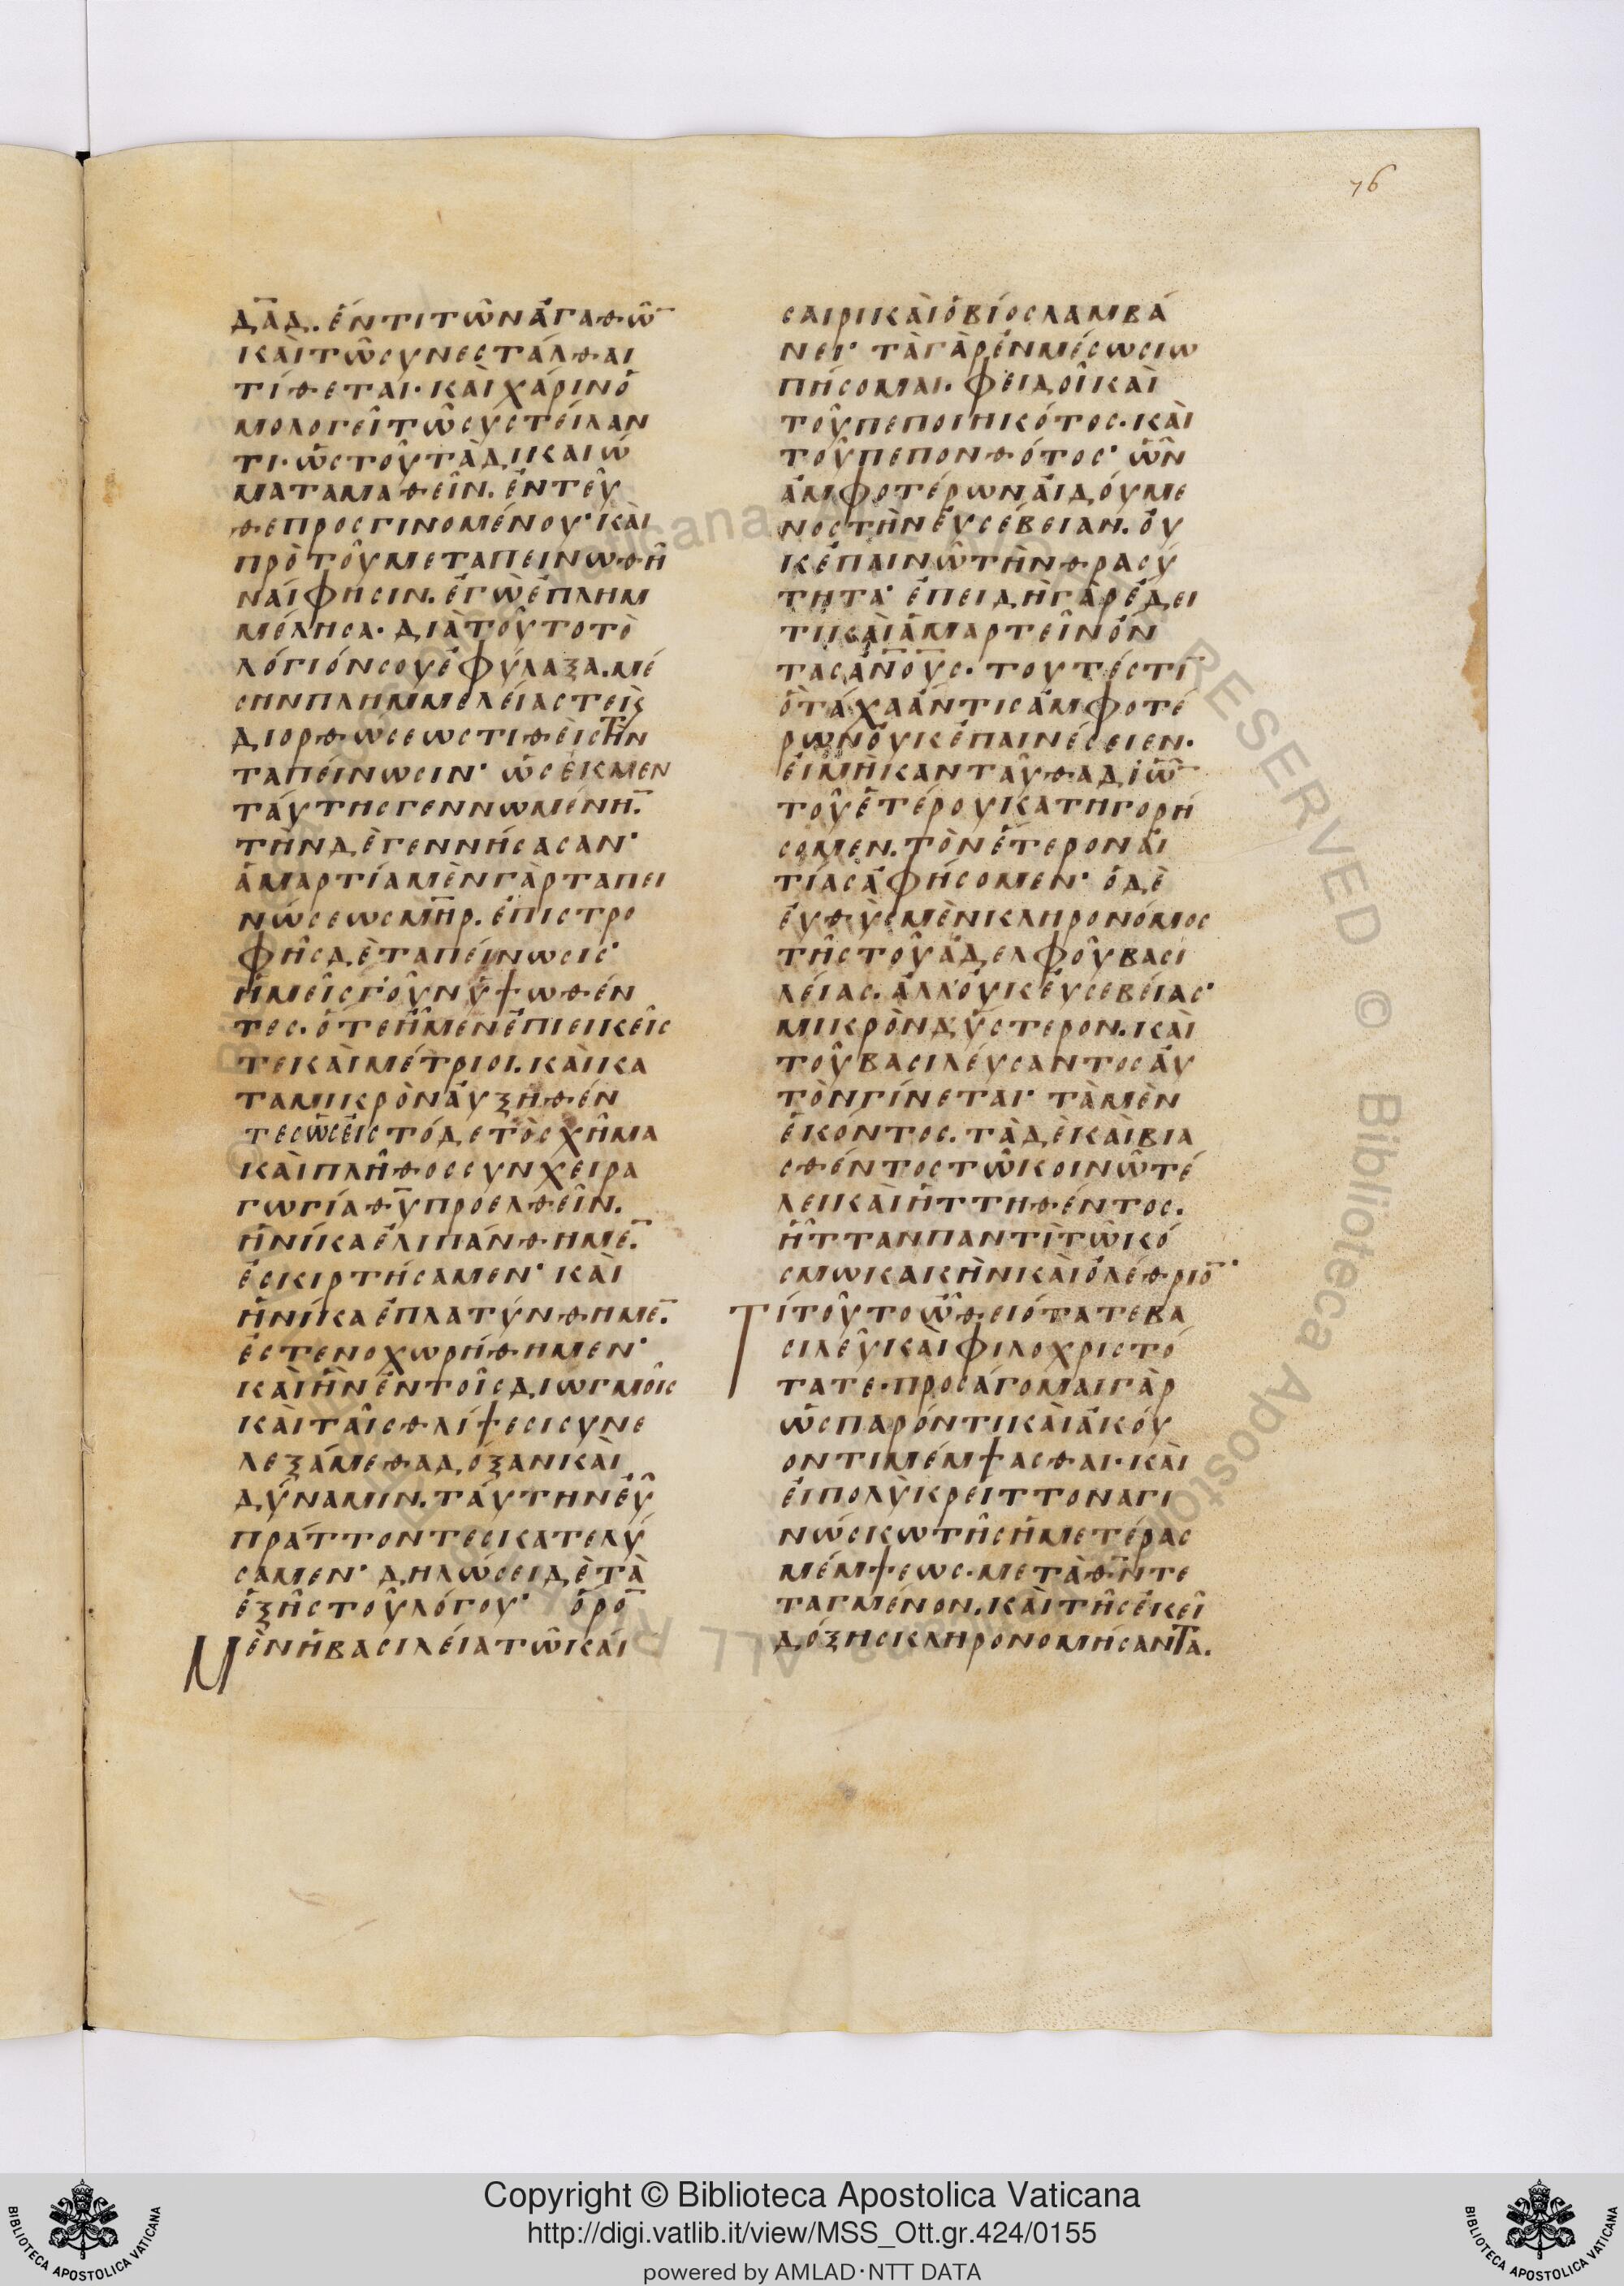 76
Δ̅Α̅Δ̅. ἕν τι τῶν ἀγαθῶ̅
καὶ τῶ συνεστάλθαι
τίθεται· καὶ χάριν ὁ
μολογεῖ τῶ συστείλαν
τι· ὡς τοῦ τὰ δικαιώ
ματα μαθεῖν. ἐντεῦ
θε προσγινομένου· καὶ
πρὸ τοῦ με ταπεινωθῆ
ναί φησιν. ἐγὼ ἐπλημ
μέλησα· διὰ τοῦτο τὸ
λόγιόν σου ἐφύλαξα. μέ
σην πλημμελείας τε κ̀
διορθώσεως τιθεὶς τὴν
ταπείνωσιν· ὡς ἐκ μεν
ταύτης γεννωμένη̅.
τὴν δὲ γεννήσασαν·
ἁμαρτία μὲν γὰρ ταπει
νώσεως μ̅η̅ρ̅. ἐπιστρο
φῆς δὲ ταπείνωσις·
ἡμεῖς γ' οὖν ὑψωθέν
τες. ὅτε ἦμεν ἐπιεικεῖς
τε καὶ μέτριοι. καὶ κα
τα μικρὸν αὐξηθέν
τες ὡς εἰς τόδε τὸ σχῆμα
καὶ πλῆθος συν χειρα
γωγία θ̅υ̅ προελθεῖν.
ἡνίκα ἐλιπάνθημε̅.
ἐσκιρτήσαμεν· καὶ
ἡνίκα ἐπλατύνθημε̅.
ἐστενοχωρήθημεν·
καὶ ἣν ἐν τοῖς διωγμοῖς
καὶ ταῖς θλίψεσι συνε
λεξάμεθα δόξαν καὶ
δύναμιν. ταύτην εὖ
πράττοντες κατελύ
σαμεν· δηλώσει δὲ τὰ
ἑξῆς τοῦ λόγου· ὅρο̅
Μὲν ἡ βασιλεία τῶ καί
σαρι καὶ ὁ βίος λαμβά
νει· τὰ γὰρ ἐν μέσω σιω
πήσομαι. φειδοῖ καὶ
τοῦ πεποιηκότος. καὶ
τοῦ πεπονθότος· ὧν
ἀμφοτέρων αἰδούμε
νος τὴν εὐσέβειαν. οὐ
κ ἐπαινῶ τὴν θρασύ
τητα· ἐπειδὴ γὰρ ἔδει
τι καὶ ἁμαρτεῖν ὄν
τας α̅ν̅ο̅υ̅ς̅. τουτέστι̅
ὃ τάχα ἄν τις ἀμφοτέ
ρων οὐκ ἐπαινέσειεν.
εἰ μὴ κανταῦθα δι' ὧ̅
τοῦ ἑτέρου κατηγορή
σομεν. τὸν ἕτερον αἰ
τίας ἀφήσομεν· ὁ δὲ
εὐθὺς μὲν κληρονόμος
τῆς τοῦ ἀδελφοῦ βασι
λείας. ἀλλ' οὐκ εὐσεβείας·
μικρὸν δ' ὕστερον. καὶ
τοῦ βασιλεύσαντος αὐ
τὸν γίνεται· τὰ μὲν
ἑκόντος. τὰ δὲ καὶ βια
σθέντος τῶ κοινῶ τέ
λει καὶ ἡττηθέντος.
ἧτταν παντὶ τῶ κό
σμω κακὴν καὶ ὀλέθριο̅·
Τί τοῦτο ὦ θειότατε βα
σιλεῦ καὶ φιλοχριστό
τατε. προσάγομαι γὰρ
ὡς παρόντι καὶ ἀκού
οντι μέμψασθαι. καὶ
εἰ πολὺ κρείττονα γι
νώσκω τῆς ἡμετέρας
μέμψεως. μετὰ θ̅υ̅ τε
ταγμένον. καὶ τῆς ἐκεῖ
δόξης κληρονομήσαντα.
Copyright © Biblioteca Apostolica Vaticana
http://digi.vatlib.it/view/MSS_Ott.gr.424/0155
powered by AMLAD·NTT DATA
BIBLIOTECA APOSTOLICA VATICANA
BIBLIOTECA APOSTOLICA VATICANA